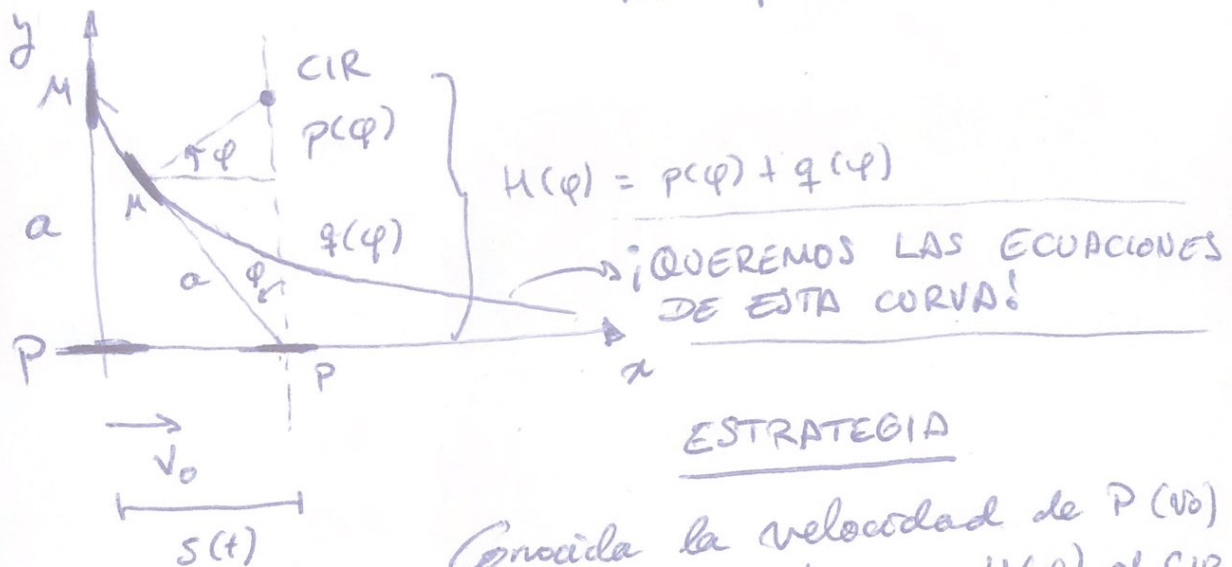 y
M
CIR
p(φ)
φ
M
H(φ) = p(φ) + q(φ)
a
q(φ)
¡QUEREMOS LAS ECUACIONES
DE ESTA CURVA!
a
φ
P
P
x
V₀
ESTRATEGIA
s(t)
Conocida la velocidad de P (v₀)
H(φ) al CIR